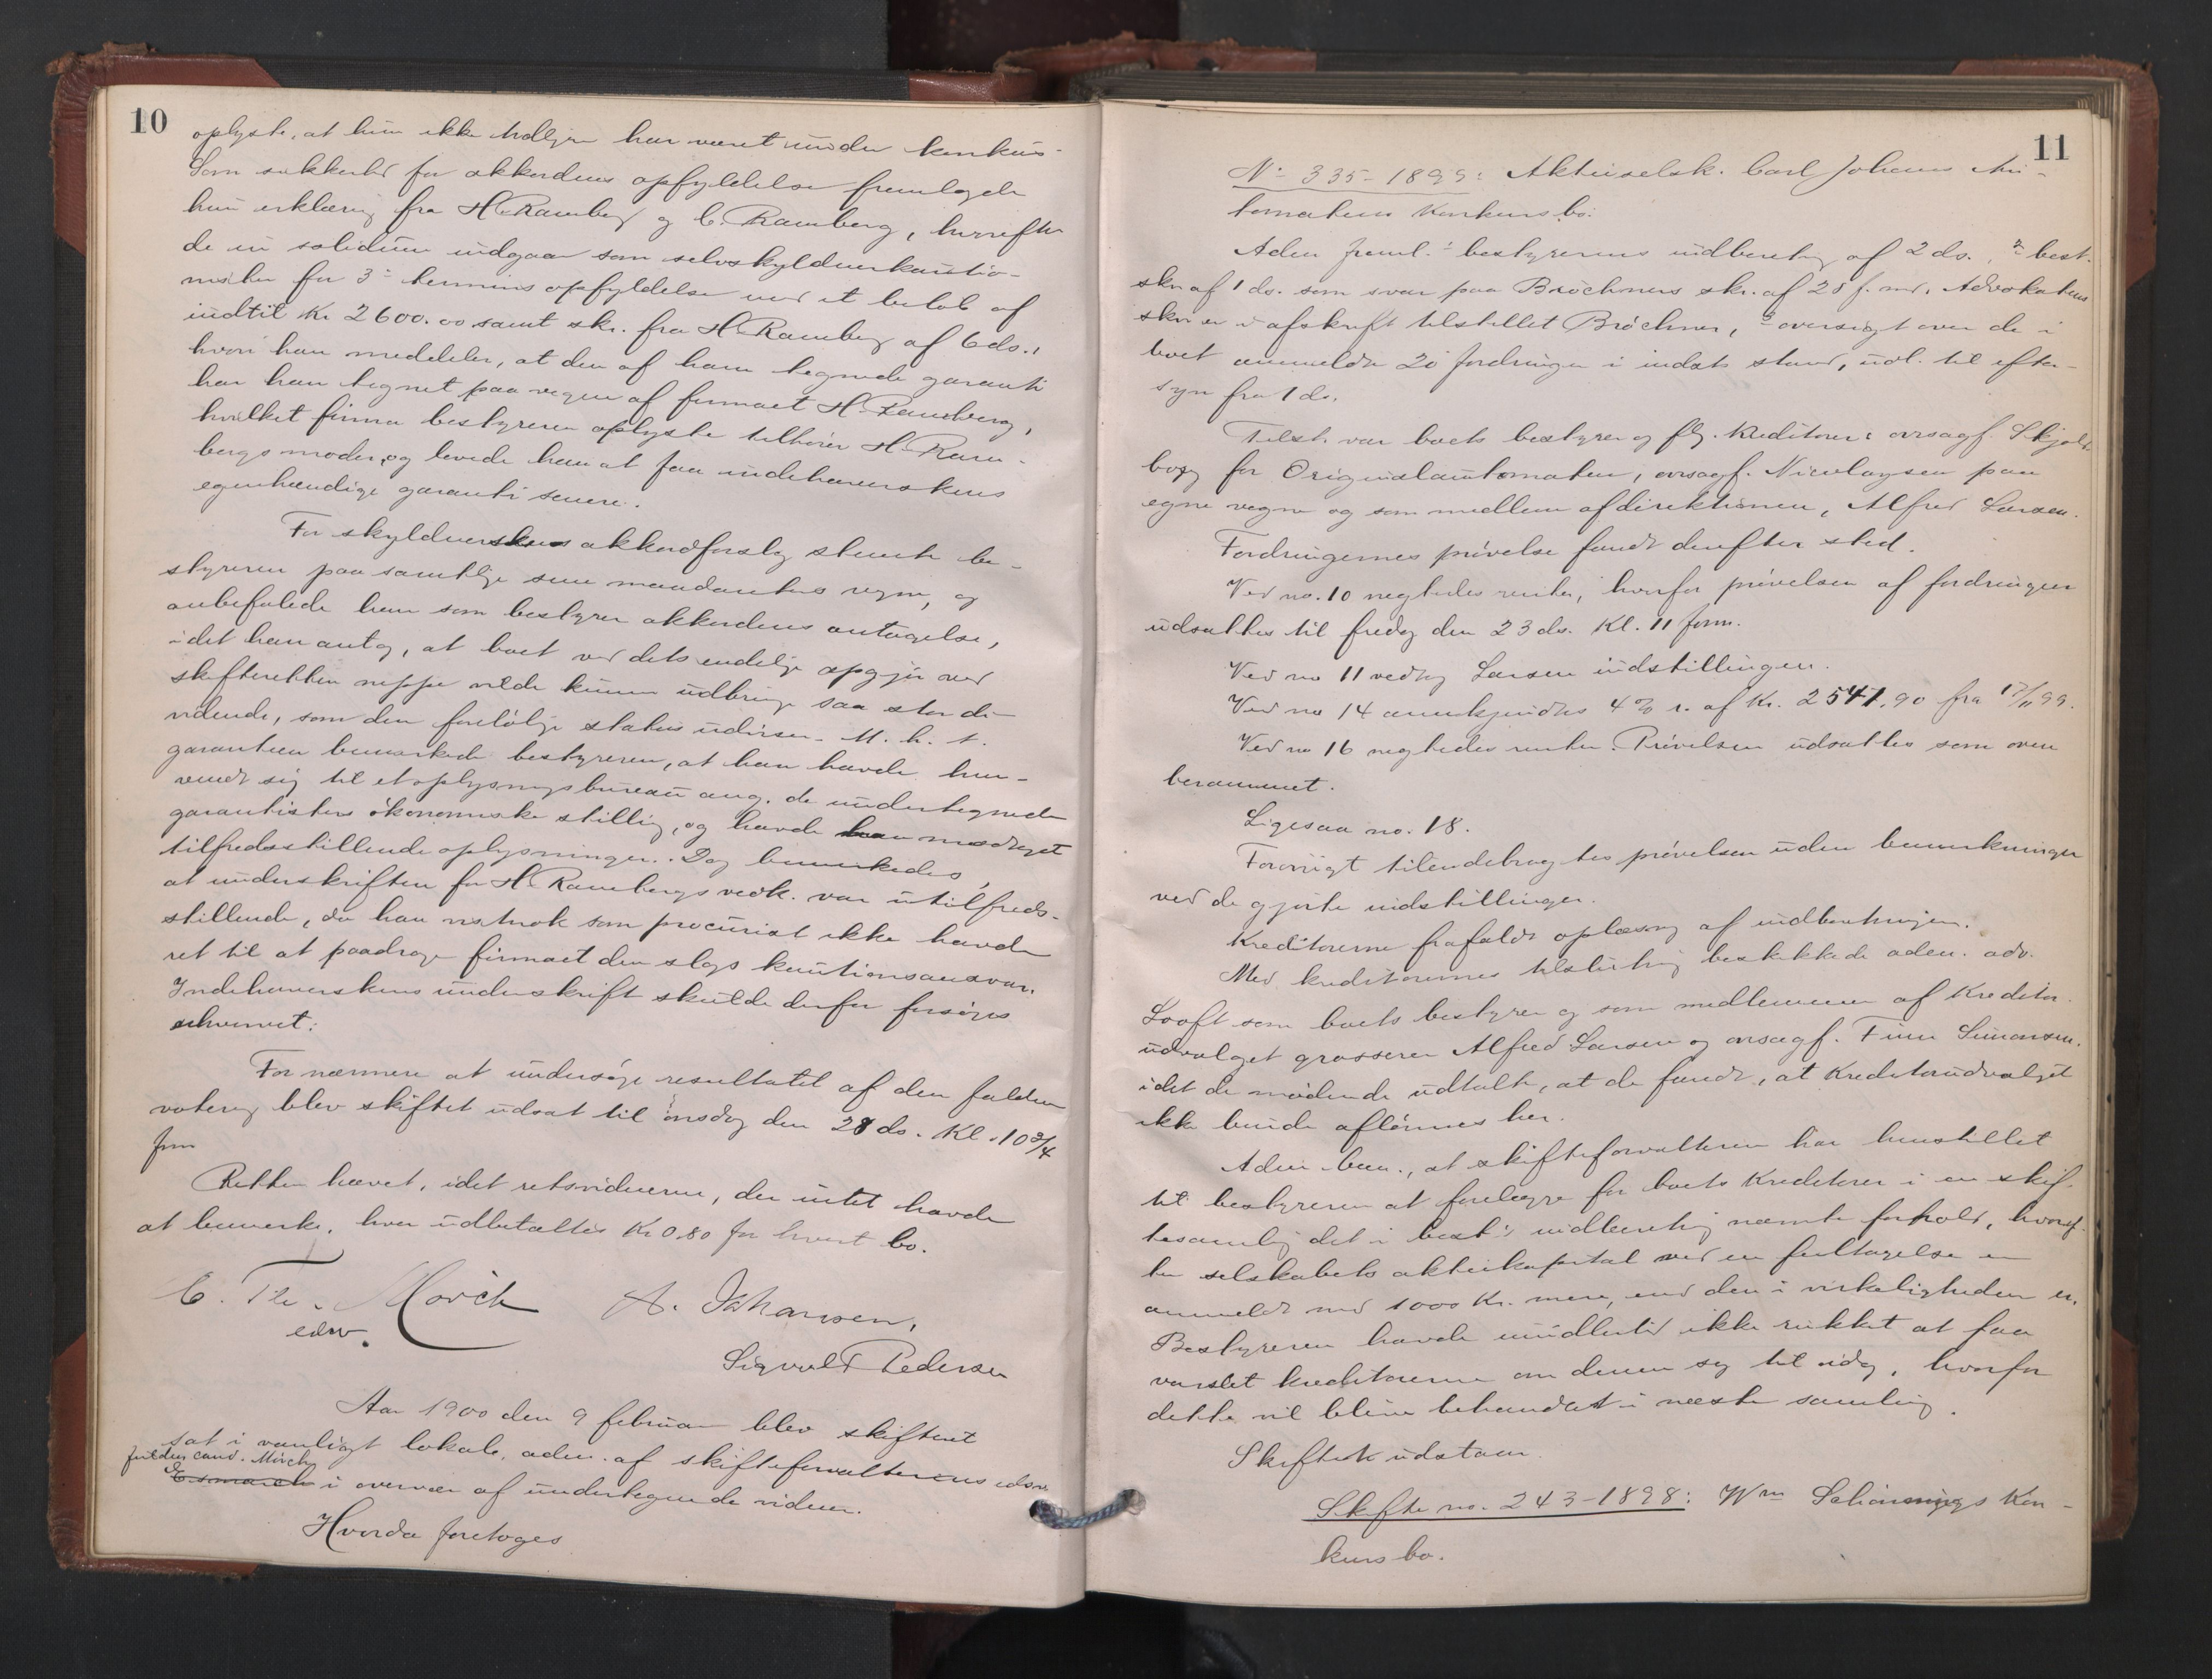 10
oplyste, at hun ikke tidligere har været under konkurs.
Som sikkerhed for akkordens opfyldelse fremlagde
hun erklæring fra H. Ramberg og C. Ramberg, hvorefter
de in solidum indgaar som selvskyldnerkautio-
nister for 3die termins opfyldelse med et beløb af
indtil Kr. 2600.00 samt skr. fra H. Ramberg af 6 ds.,
hvori han meddeler, at den af ham tegnede garanti
har han tegnet paa vegne af firmaet H. Ramberg,
hvilket firma bestyreren oplyste tilhører H. Ram-
bergs moder, og lovede han at faa indehaverskens
egenhændige garanti senere.
For skyldnerskens akkordforslag stemte be-
styreren paa samtlige sine mandanters vegne, og
anbefalede han som bestyrer akkordens antagelse,
idet han antog, at boet ved dets endelige opgjør ved
skifteretten neppe vilde kunne udbringe saa stor di-
vidende, som den foreløbige status udviser. M. h. t.
garantien bemærkede bestyreren, at han havde hen-
vendt sig til et oplysningsbureau ang. de undertegnede
garantisters økonomiske stilling, og havde han modtaget
tilfredsstillende oplysninger. Dog bemærkedes,
at underskriften for H. Rambergs vedk. var utilfreds-
stillende, da han vistnok som procurist ikke havde
ret til at paadrage firmaet den slags kautionsansvar.
Indehaverskens underskrift skulde derfor forsøges
erhvervet.
For nærmere at undersøge resultatet af den faldne
votering blev skiftet udsat til onsdag den 28 ds. Kl. 10 3/4
form
Retten hævet, idet retsvidnerne, der intet havde
at bemærke, hver udbetaltes Kr 0,80 for hvert bo.
C. Th. Mørch A. Johansen,
edsv.
Sigvald Pedersen
Aar 1900 den 9 februar blev skifteret
sat i vanligt lokale, adm. af skifteforvalterens edsv.
fuldm. cand. Mørch
Esmarch i overvær af undertegnede vidner.
Hvorda foretoges
11
No 335-1899: Aktieselsk. Carl Johans Au-
tomatens Konkursbo.
Adm. freml. 1 bestyrerens indberetng af 2 ds., 2 best.
skr. af 1 ds. som svar paa Bröchners skr. af 28 f. md. Advokatens
skr. er i afskrift tilstillet Bröchner, 3 oversigt over de i
boet anmeldte 20 fordringer i indstz stand, udl. til efter-
syn fra 1 ds.
Tilst. var boets bestyrer og flg. Kreditorer: ovrsagf. Skjold-
borg for Originalautomaten, ovrsagf. Nicolaysen paa
egne vegne og som medlem af direktionen, Alfred Larsen.
Fordringernes prøvelse fandt derefter sted.
Ved no. 10 negtedes renter, hvorfor prøvelsen af fordringen
udsattes til fredag den 23 ds. Kl. 11 form.
Ved no 11 vedtog Larsen indstillingen.
Ved no 14 anerkjendtes 4 % r. af Kr. 2541,90 fra 17/11 99.
Ved no 16 negtedes renter. Prøvelsen udsattes som oven
berammet.
Ligesaa no. 18.
Forøvrigt tilendebragtes prøvelsen uden bemerkninger
ved de gjorte indstillinger.
Kreditorerne frafaldt oplæsng af indberetningen.
Med kreditorernes tilslutning beskikkede adm. adv.
Looft som boets bestyrer og som medlemmer af Kreditor-
udvalget grosserer Alfred Larsen og ovrsagf. Finn Simonsen,
idet de mødende udtalte, at de fandt, at Kreditorudvalget
ikke burde aflønnes her.
Adm. bem., at skifteforvalteren har henstillet
til bestyreren at forelægge for boets Kreditorer i en skif-
tesamling det i best's indberetng nævnte forhold, hvoref-
ter selskabets aktiekapital ved en feiltagelse er
anmeldt med 1000 Kr. mere, end den i virkeligheden er.
Bestyreren havde imidlertid ikke rukket at faa
varslet kreditorerne om denne sag til idag, hvorfor
dette vil blive behandlet i næste samling.
Skiftet udstaar.
Skifte no. 243-1898: Wm Schønnings Kon-
kursbo.